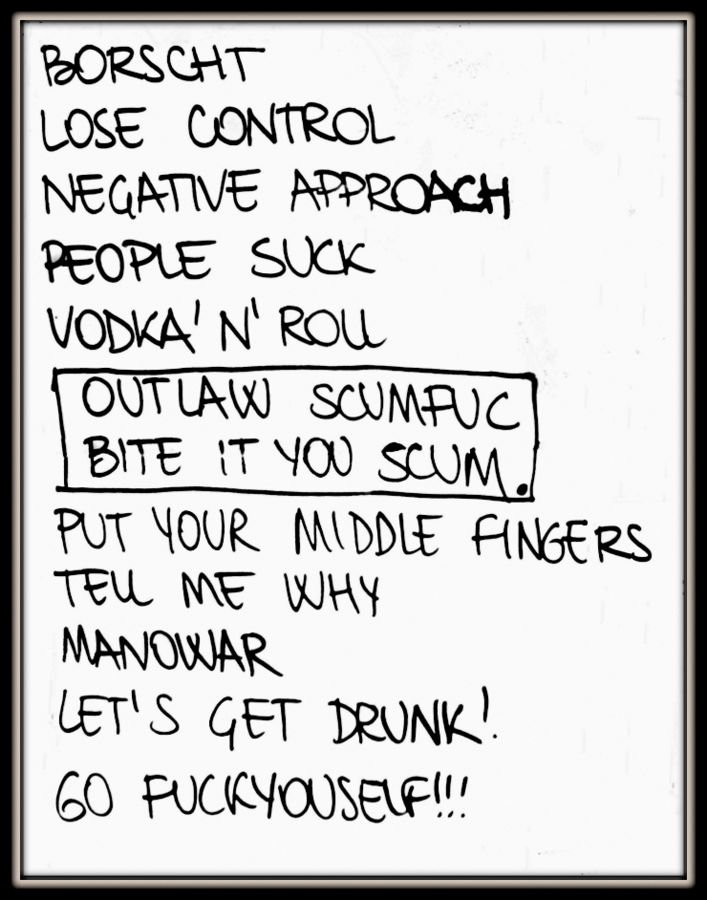 BORSCHT
LOSE CONTROL
NEGATIVE APPROACH
PEOPLE SUCK
VODKA'N'ROLL
OUTLAW SCUMFUC
BITE IT YOU SCUM.
PUT YOUR MIDDLE FINGERS
TELL ME WHY
MANOWAR
LET'S GET DRUNK!
GO FUCKYOUSELF!!!